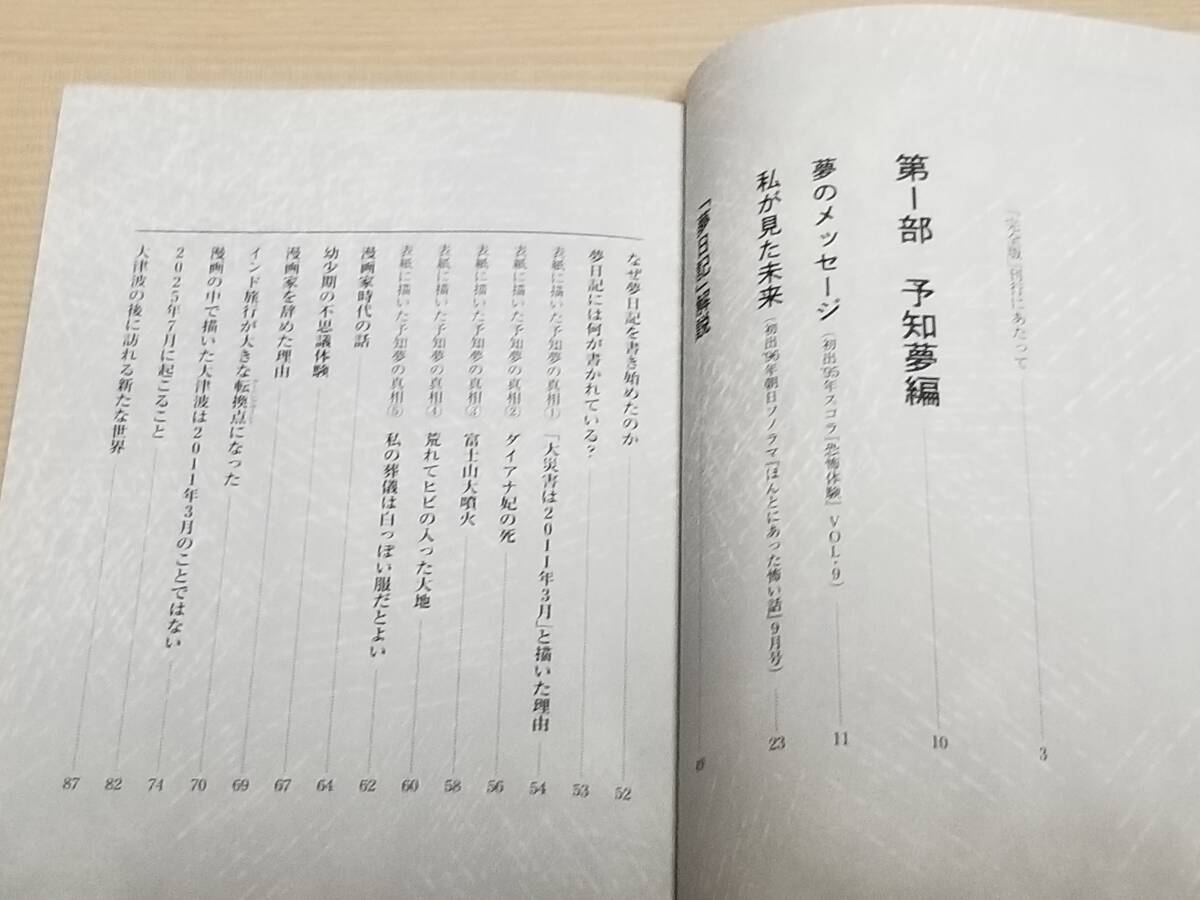 「完全版」刊行にあたって 3
第1部 予知夢編 10
夢のメッセージ（初出'95年スコラ『恐怖体験』VOL・9） 11
私が見た未来（初出'96年朝日ソノラマ『ほんとにあった怖い話』9月号） 23
「夢日記」解説
なぜ夢日記を書き始めたのか 52
夢日記には何が書かれている？ 53
表紙に描いた予知夢の真相① 「大災害は2011年3月」と描いた理由 54
表紙に描いた予知夢の真相② ダイアナ妃の死 56
表紙に描いた予知夢の真相③ 富士山大噴火 58
表紙に描いた予知夢の真相④ 荒れてヒビの入った大地 60
表紙に描いた予知夢の真相⑤ 私の葬儀は白っぽい服だとよい 62
漫画家時代の話 64
幼少期の不思議体験 67
漫画家を辞めた理由 69
インド旅行が大きな転換点になった 70
漫画の中で描いた大津波は2011年3月のことではない 74
2025年7月に起こること 82
大津波の後に訪れる新たな世界 87